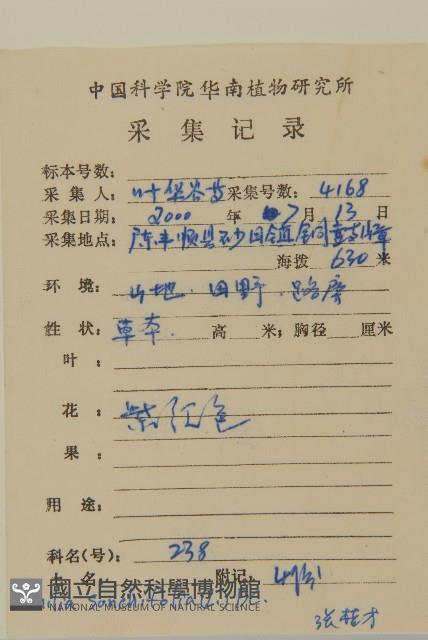 中国科学院华南植物研究所
采集记录
标本号数:
采集人: 叶 采集号数: 4168
采集日期: 2000 年 7 月 13 日
采集地点: 丰顺县砂田镇
海拨 630 米
环境: 山地.田野.路旁
性状: 草本. 高 米; 胸径 厘米
叶:
花: 紫红色
果:
用途:
科名(号): 238
土名: 附记:
國立自然科學博物館
NATIONAL MUSEUM OF NATURAL SCIENCE